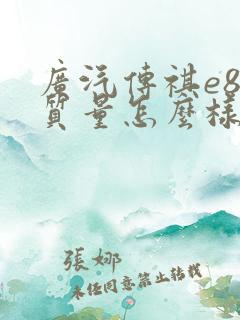 廣汽傳祺e8
質量怎麼樣
張娜
未經同意禁止轉載